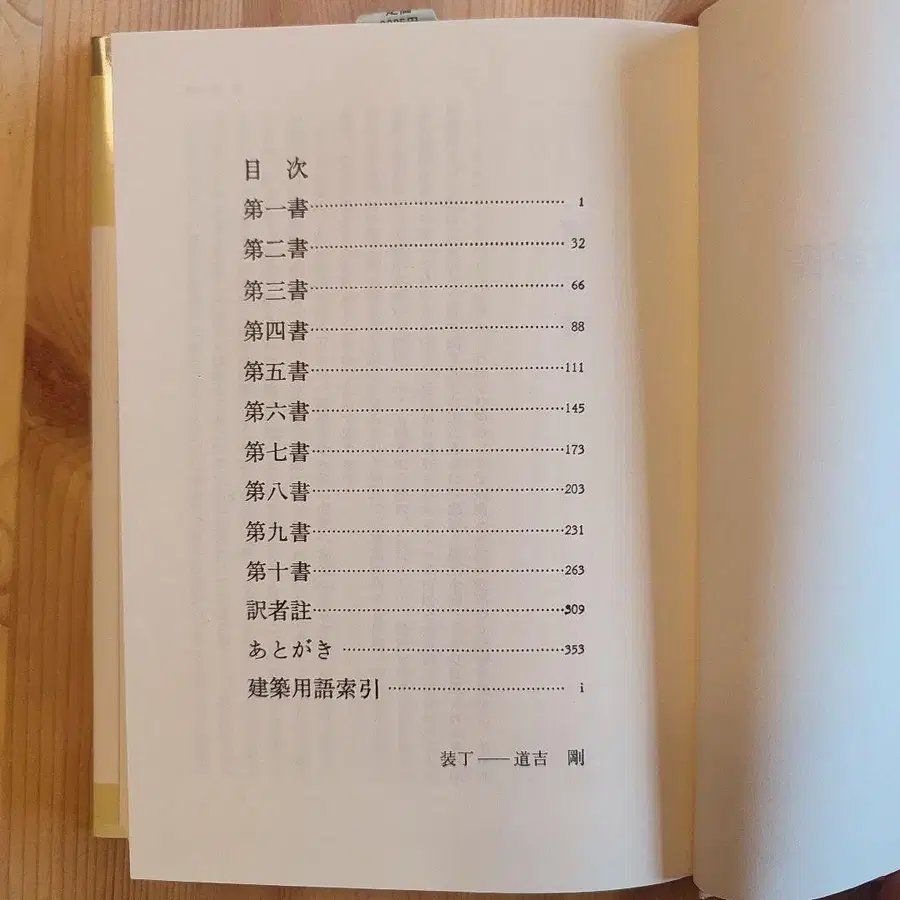 目 次
第一書……………………………… 1
第二書……………………………… 32
第三書……………………………… 66
第四書……………………………… 88
第五書………………………………111
第六書………………………………145
第七書………………………………173
第八書………………………………203
第九書………………………………231
第十書………………………………263
訳者註………………………………309
あとがき……………………………353
建築用語索引……………………… i
装丁――道吉 剛